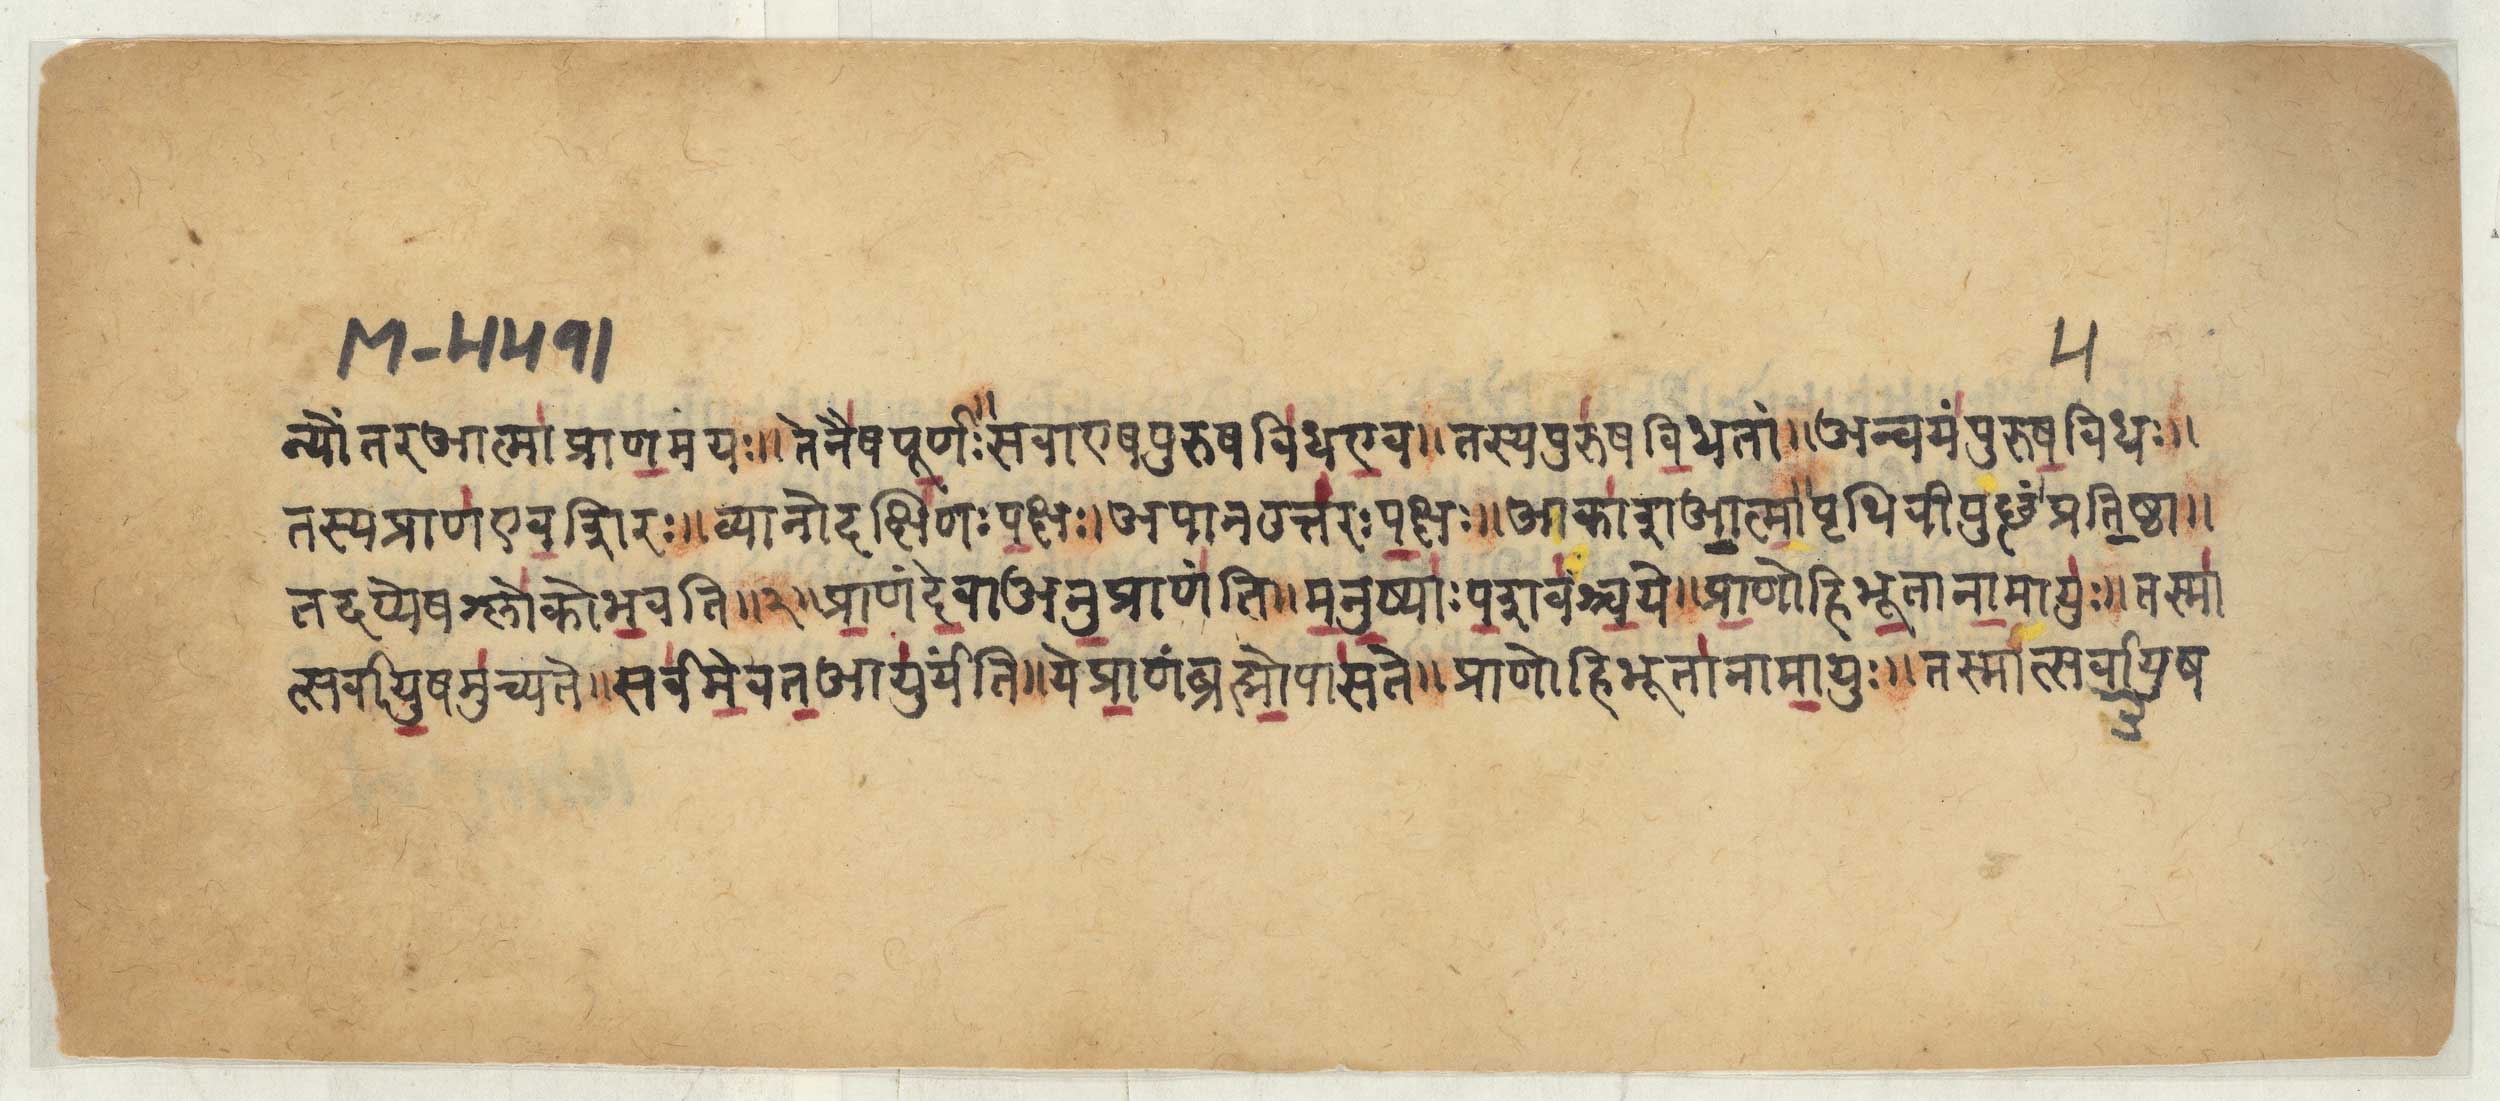 M-४५९१
५
न्योंतरआत्माप्राणमयः॥तेनैषपूर्णः॥सवाएषपुरुषविधएव॥तस्यपुरुषविधतां॥अन्वयंपुरुषविधः॥
तस्यप्राणएवशिरः॥व्यानोदक्षिणःपक्षः॥अपानउत्तरःपक्षः॥आकाशआत्मा॥पृथिवीपुछंप्रतिष्ठा॥
तदप्येषश्लोकोभवति॥२॥प्राणंदेवाअनुप्राणंति॥मनुष्याःपशवंश्चये॥प्राणोहिभूतानामायुः॥तस्मा
त्सर्वायुषमुच्यते॥सर्वमेवतआयुर्यंति॥येप्राणंब्रह्मोपासते॥प्राणोहिभूतानामायुः॥तस्मात्सर्वायुष
३